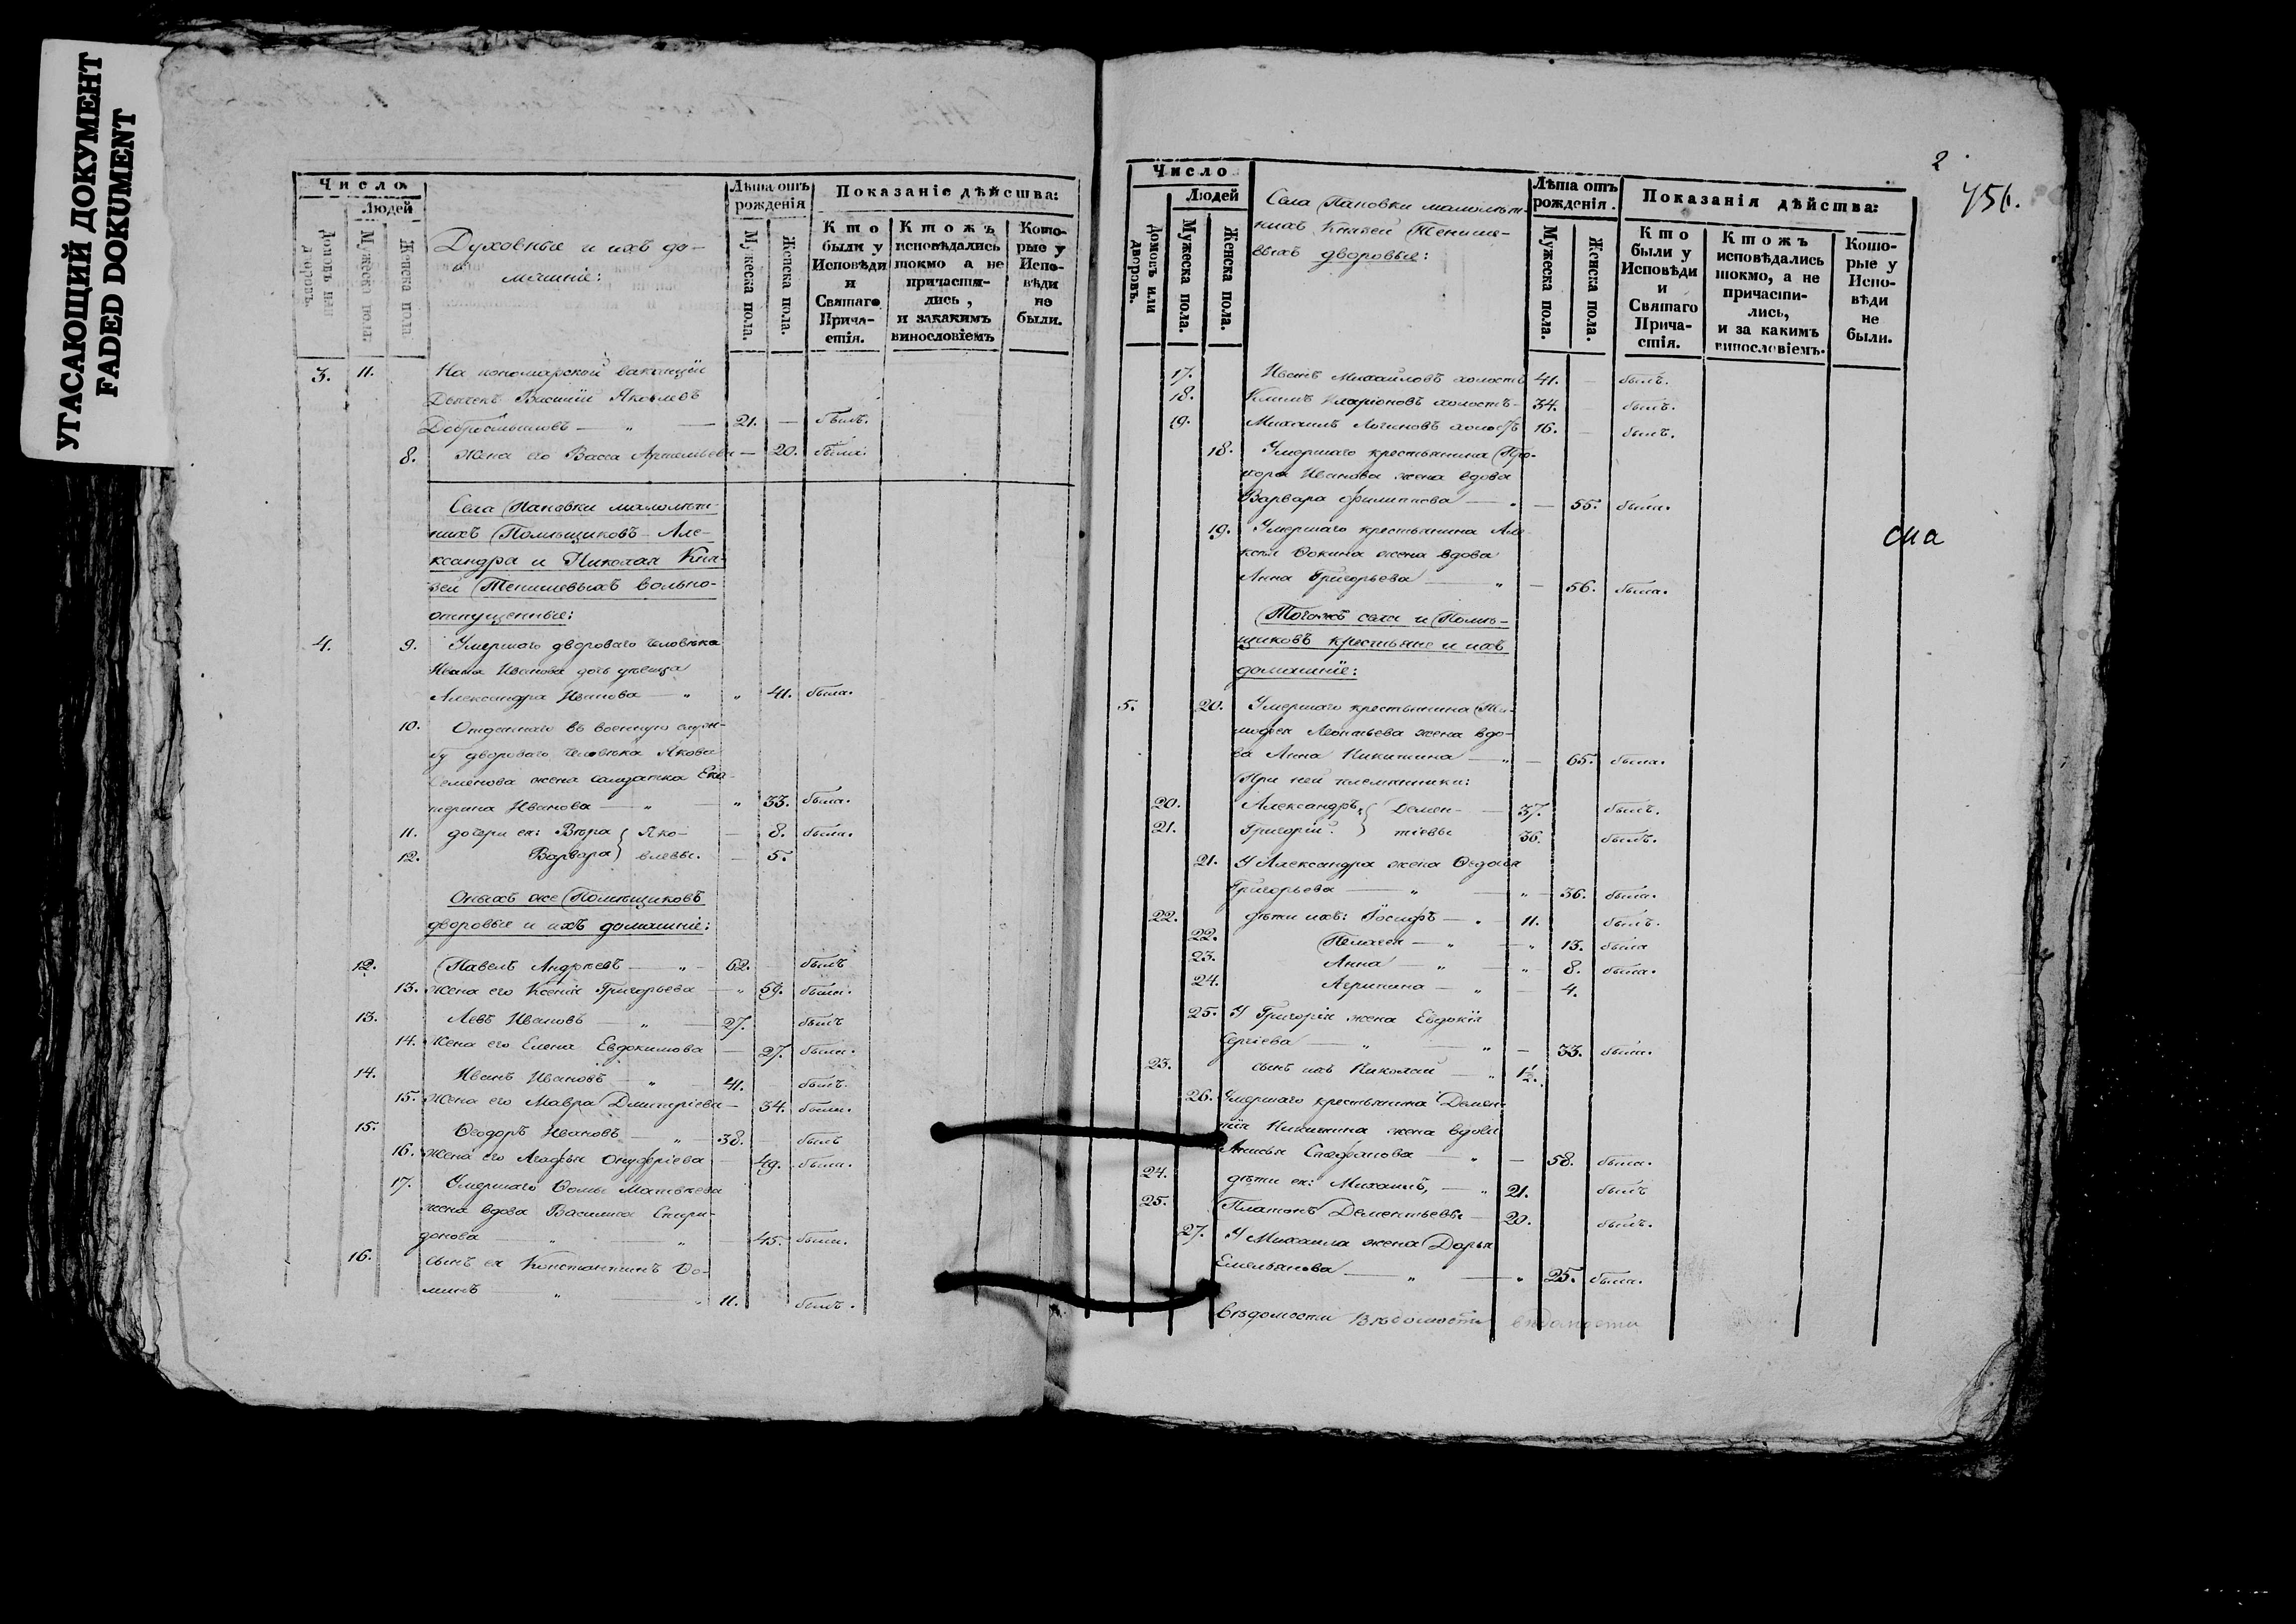 УГАСАЮЩИЙ ДОКУМЕНТ
FADED DOKUMENT
Число
Людей
Домовъ или дворовъ.
Мужеска пола.
Женска пола
Духовные и ихъ до-
машніе:
Лѣта отъ рожденія
Мужеска пола
Женска пола.
Показаніе дѣйства:
Кто были у Исповѣди и Святаго Прича-стія.
Ктожъ исповѣдались токмо а не причасти-лись, и закакимъ винословіемъ
Кото-рые у Испо-вѣди не были.
3. 11. На пономарской ваканціи
Дьячекъ Василій Яковлевъ
Добросмысловъ — " — 21. — былъ.
8. Жена его Васса Артемьева — 20. была.
Села Пановки малолѣт-
нихъ Помѣщиковъ Але-
ксандра и Николая Кня-
зей Тенишевыхъ вольно-
отпущенные:
4. 9. Умершаго двороваго человѣка
Ивана Иванова дочь дѣвица
Александра Иванова — " " 41. была.
10. Отданнаго въ военную служ-
бу двороваго человѣка Якова
Семенова жена солдатка Ека-
терина Иванова — " — " 33. была.
11. дочери ея: Вѣра } Яко- — 8. была.
12. Варвара } влевы. — 5.
Оныхъ же Помѣщиковъ
дворовые и ихъ домашніе:
12. Павелъ Андреевъ — " — 62. былъ
13. жена его Ксенія Григорьева — " 59. была.
13. Левъ Ивановъ — " — 27. былъ
14. Жена его Елена Евдокимова — 27. была.
14. Иванъ Ивановъ — " 41. былъ.
15. Жена его Мавра Дмитріева — 34. была.
15. Ѳеодоръ Ивановъ — " — 38. былъ
16. жена его Агафья Онуфріева — 49. была.
17. Умершаго Ѳомы Матвѣева
жена вдова Василиса Спири-
донова — " — " — 45. была.
16. сынъ ея Константинъ Ѳо-
минъ — " — " 11. былъ.
2.
456.
Число
Людей
Домовъ или дворовъ.
Мужеска пола.
Женска пола.
Села Пановки малолѣт-
нихъ Князей Тенише-
выхъ дворовые:
Лѣта отъ рожденія.
Мужеска пола.
Женска пола.
Показанія дѣйства:
Кто были у Исповѣди и Святаго Прича-стія.
Ктожъ исповѣдались токмо, а не причасти-лись, и за какимъ винословіемъ.
Кото-рые у Испо-вѣди не были.
17. Иванъ Михайловъ холостъ 41. — былъ.
18. Иларіоновъ холостъ — 34. — былъ.
19. Михаилъ Логиновъ холостъ 16. — былъ.
18. Умершаго крестьянина Про-
хора Иванова жена вдова
Варвара Филиппова — " — 55. была.
19. Умершаго крестьянина Але-
ксѣя Ѳокина жена вдова
Анна Григорьева — " — 56. была.
Тогожъ села и Помѣ-
щиковъ крестьяне и ихъ
домашніе:
5. 20. Умершаго крестьянина Ти-
мофея Леонтьева жена вдо-
ва Анна Никитина — " — 65. была.
При ней племянники:
20. Александръ } Демен- — 37. былъ.
21. Григорій. } тіевы 36. былъ.
21. У Александра жена Ѳедосья
Григорьева — " — " — 36. была.
22. дѣти ихъ: Іосифъ — " 11. былъ.
22. Пелагея — " — " 13. была
23. Анна — " — " 8. была.
24. Агрипина — " — 4.
25. У Григорія жена Евдокія
Сергіева — " — " — 33. была.
23. сынъ ихъ Николай — " ½.
26. Умершаго крестьянина Демен-
тія Никитина жена вдова
Анисья Стефанова — " — 58. была.
24. дѣти ея: Михаилъ, — " 21. былъ
25. Платонъ Дементьевы 20. былъ.
27. У Михаила жена Дарья
Емельянова — " — " 25. была.
Вѣдомости Вѣдомости вѣдомости